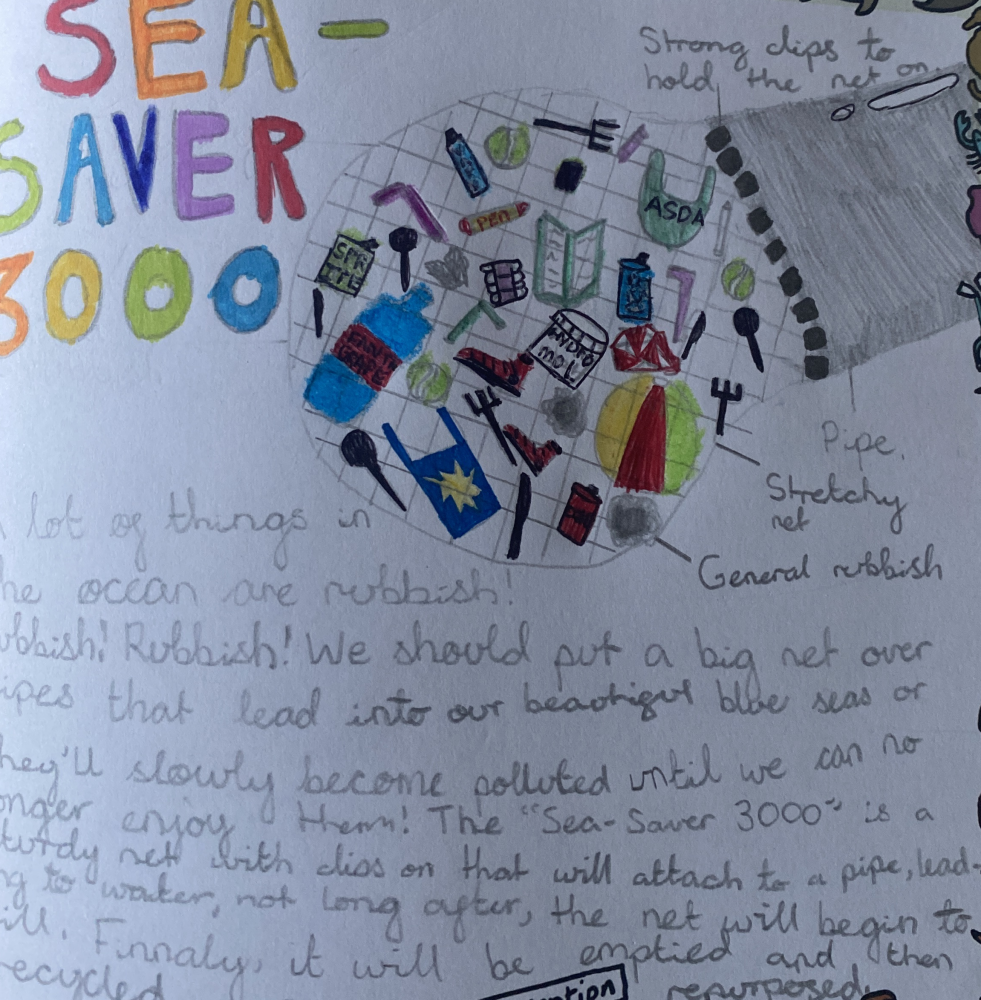 SEA-
SAVER
3000
Strong clips to
hold the net on.
ASDA
PEN
SPR
ITE
Pipe.
Stretchy
net
General rubbish
lot of things in
he ocean are rubbish!
ubbish! Rubbish! We should put a big net over
ipes that lead into our beautigul blue seas or
hey'll slowly become polluted until we can no
onger enjoy them! The "Sea-Saver 3000" is a
turdy net with cliss on that will attach to a pipe, lead-
ng to water, not long after, the net will begin to
ill. Finnaly, it will be emptied and then
recycled repurposed.